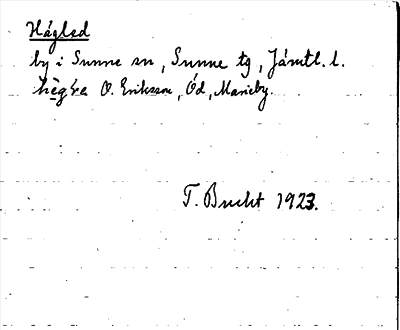 Hägled
by i Sunne sn, Sunne tg, Jämtl. l.
O. Eriksson, Öd, Marieby.
T. Bucht 1923.